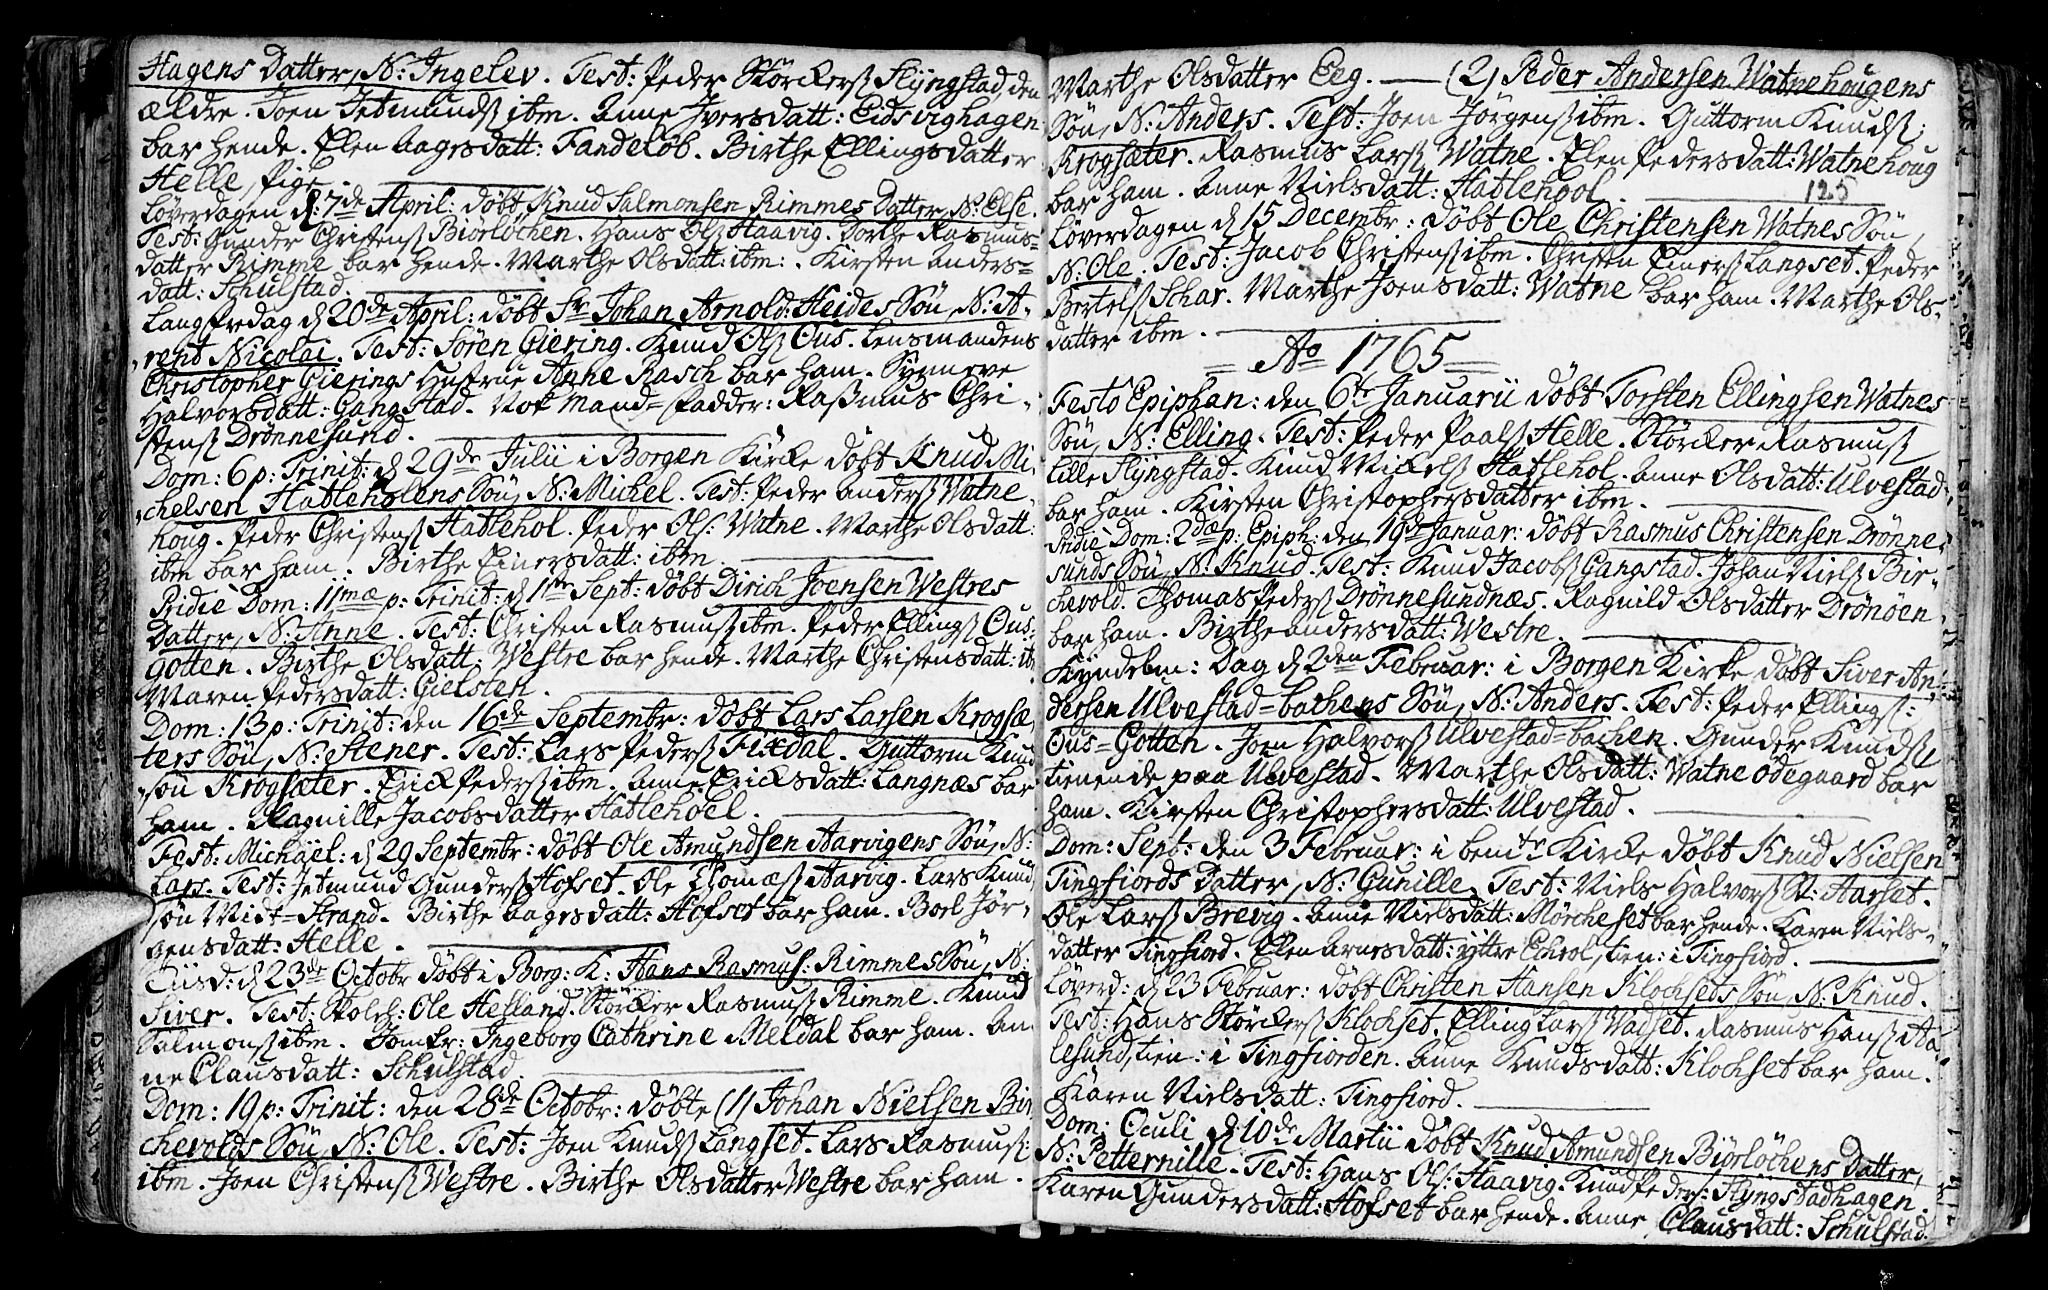 Hagens Datter, N: Ingelev. Test: Peder Störckers Slÿngstad, den
ældre. Joen Jetmunds ibm. Anne Iversdatt: Eidsvighagen
bar hende. Elen Aagesdatt: Fandelöb. Birthe Ellingsdatter
Helle, Pige.
Löverdagen d: 7de April: döbt Knud Salmonsen Rimmes Datter, N: Else.
Test: Gunder Christens Biörlöchen. Hans Ols Haavig. Dorthe Rasmus-
datter Rimme bar hende. Marthe Olsdatt: ibm: . Kirsten Anders-
datt: Schulstad.
Langfredag d 20de April: döbt Sr Johan Arnold: Heides Sön, N: A-
rent Nicolai. Test: Sören Giering. Knud Ols Ous. Lensmandens
Christopher Gierings Hustrue Anne Rasch bar ham. Synneve
Halvorsdatt: Gangstad. Nok Mand-Fadder: Rasmus Chri-
stens Drönnesund.
Dom: 6 p: Trinit: d 29de Julii i Borgen Kircke döbt Knud Mi-
chelsen Hatleholens Sön, N: Michel. Test: Peder Anders Watne-
houg. Peder Christens Hatlehol. Peder Ols: Watne. Marthe Olsdatt:
ibm bar ham. Birthe Einersdatt: ibm.
Pridie Dom: 11mæ p: Trinit: d 1ten Sept: döbt Dirich Joensen Westres
Datter, N: Anne. Test: Christen Rasmus ibm. Peder Ellings Ous-
gotten. Birthe Olsdatt: Westre bar hende. Marthe Christensdatt: ibm
Maren Pedersdatt: Gielsten.
Dom: 13 p: Trinit: den 16de Septembr: döbt Lars Larsen Krogsæ-
ters Sön, N: Stener. Test: Lars Peders Fixdal. Guttorm Knud-
sön Krogsæter. Erick Peders ibm. Anne Ericksdatt: Langnæs bar
ham. Ragnille Jacobsdatter Hatlehoel.
Fest: Michäel: d 29 Septembr: döbt Ole Amundsen Aarvigens Sön, N:
Lars. Test: Jetmund Gunders Hofset. Ole Thomæs Aarvig. Lars Knud-
sön Midt-Strand. Birthe Aagesdatt: Hofset bar ham. Boel Jör-
gensdatt: Helle.
Tiisd: d 23de Octobr döbt i Borg: K: Hans Rasmus: Rimmes Sön, N:
Siver. Test: Skoleh: Ole Helland. Störcker Rasmus Rimme. Knud
Salmons ibm. Jomfr: Ingeborg Cathrine Meldal bar ham. An-
ne Clausdatt: Schulstad.
Dom: 19 p: Trinit: den 28de Octobr: döbte (1) Johan Nielsen Bir-
chevolds Sön, N: Ole. Test: Joen Knuds Langset. Lars Rasmus:
ibm. Joen Christens Westre. Birthe Olsdatter Westre bar ham.
Marthe Olsdatter Eeg. (2) Peder Andersen Watnehougens
Sön, N: Anders. Test: Joen Jörgens ibm. Guttorm Knuds:
Krogsæter. Rasmus Lars Watne. Elen Pedersdatt: Watnehoug
bar ham. Anne Nielsdatt: Hatlehool.
125
Löverdagen d 15 Decembr: döbt Ole Christensen Watnes Sön,
N: Ole. Test: Jacob Christens ibm. Christen Einers Langset. Peder
Bertels Schar. Marthe Joensdatt: Watne bar ham. Marthe Ols-
datter ibm.
Ao 1765
Festo Epiphan: den 6te Januarii döbt Torsten Ellingsen Watnes
Sön, N: Elling. Test: Peder Paals Helle. Störcker Rasmus
Lille Slÿngstad. Knud Nickels Hatlehol. Anne Olsdatt: Ulvestad
bar ham. Kirsten Christophersdatter ibm.
Pridie Dom: 2dæ p: Epiph: den 19de Januar: döbt Rasmus Christensen Drönne-
sunds Sön, N: Knud. Test: Knud Jacobs Gangstad. Johan Niels Bir-
chevold. Thomas Peders Drönnesundnæs. Ragnild Olsdatter Drönöen
bar ham. Birthe Andersdatt: Westre.
Kÿndelm: Dag d 2den Februar: i Borgen Kirke döbt Siver An-
dersen Ulvestad-bachens Sön, N: Anders. Test: Peder Ellings:
Ous-Gotten. Joen Halvors Ulvestad-bachen. Gunder Knuds
tienende paa Ulvestad. Marthe Olsdatt: Watne ödegaard bar
ham. Kirsten Christophersdatt: Ulvestad.
Dom: Sept: den 3 Februar: i bemte Kircke döbt Knud Nielsen
Tingfiords Datter, N: Gunille. Test: Niels Halvors St: Aarset.
Ole Lars Brevig. Anne Nielsdatt: Mörcheset bar hende. Karen Niels-
datter Tingfiord. Elen Arnesdatt: ÿttre Echrol, tien: i Tingfiord.
Löverd: d 23 Februar: döbt Christen Hansen Klochsets Sön, N: Knud.
Test: Hans Störckers Klochset. Elling Lars Vadset. Rasmus Hans Aa-
lesund, tien: i Tingfiorden. Anne Knudsdatt: Klochset bar ham.
Karen Nielsdatt: Tingfiord.
Dom: Oculi d 10de Martii döbt Knud Amundsen Biörlöchens Datter,
N: Petternille. Test: Hans Ols: Haavig. Knud Peders: Slÿngstadhagen.
Karen Gundersdatt: Hofset bar hende. Anne Clausdatt: Schulstad.